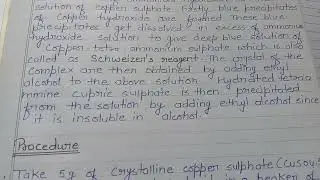 solution of copper sulphate. Firstly blue precipitates
of Copper hydroxide are formed these blue
precipitates get dissolved in excess of ammonium
hydroxide solution to give deep blue solution of
Copper tetra ammonium sulphate which is also
called as Schweizer's reagent. The crystal of the
Complex are then obtained by adding ethyl
alcohol to the above solution. Hydrated tetra
mmine cupric sulphate is then precipitated
from the solution by adding ethyl alcohol since
it is insoluble in alcohol.
Procedure
Take 5g of Crystalline copper sulphate (CuSO4.5
a beaker of